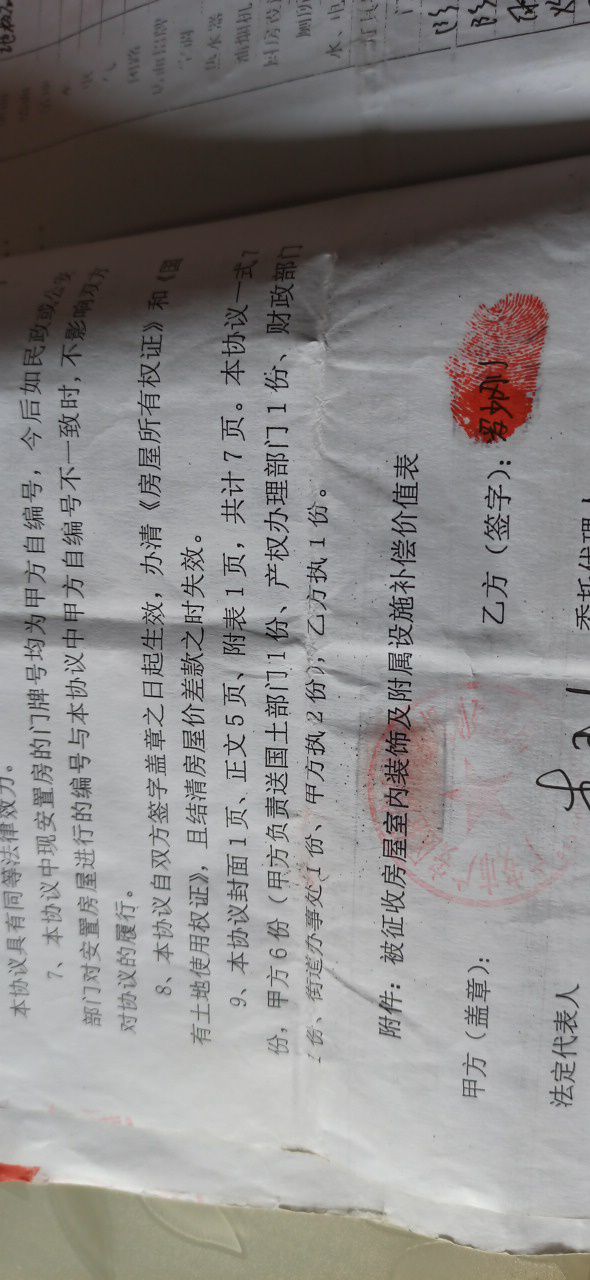 本协议具有同等法律效力。
7、本协议中现安置房的门牌号均为甲方自编号，今后如民政或公安
部门对安置房屋进行的编号与本协议中甲方自编号不一致时，不影响双方
对协议的履行。
8、本协议自双方签字盖章之日起生效，办清《房屋所有权证》和《国
有土地使用权证》，且结清房屋价差款之时失效。
9、本协议封面1页、正文5页、附表1页，共计7页。本协议一式7
份，甲方6份（甲方负责送国土部门1份、产权办理部门1份、财政部门
1份、街道办事处1份、甲方执2份），乙方执1份。
附件：被征收房屋室内装饰及附属设施补偿价值表
甲方（盖章）：
乙方（签字）：
法定代表人
委托代理人
热水器
油烟机
水、电